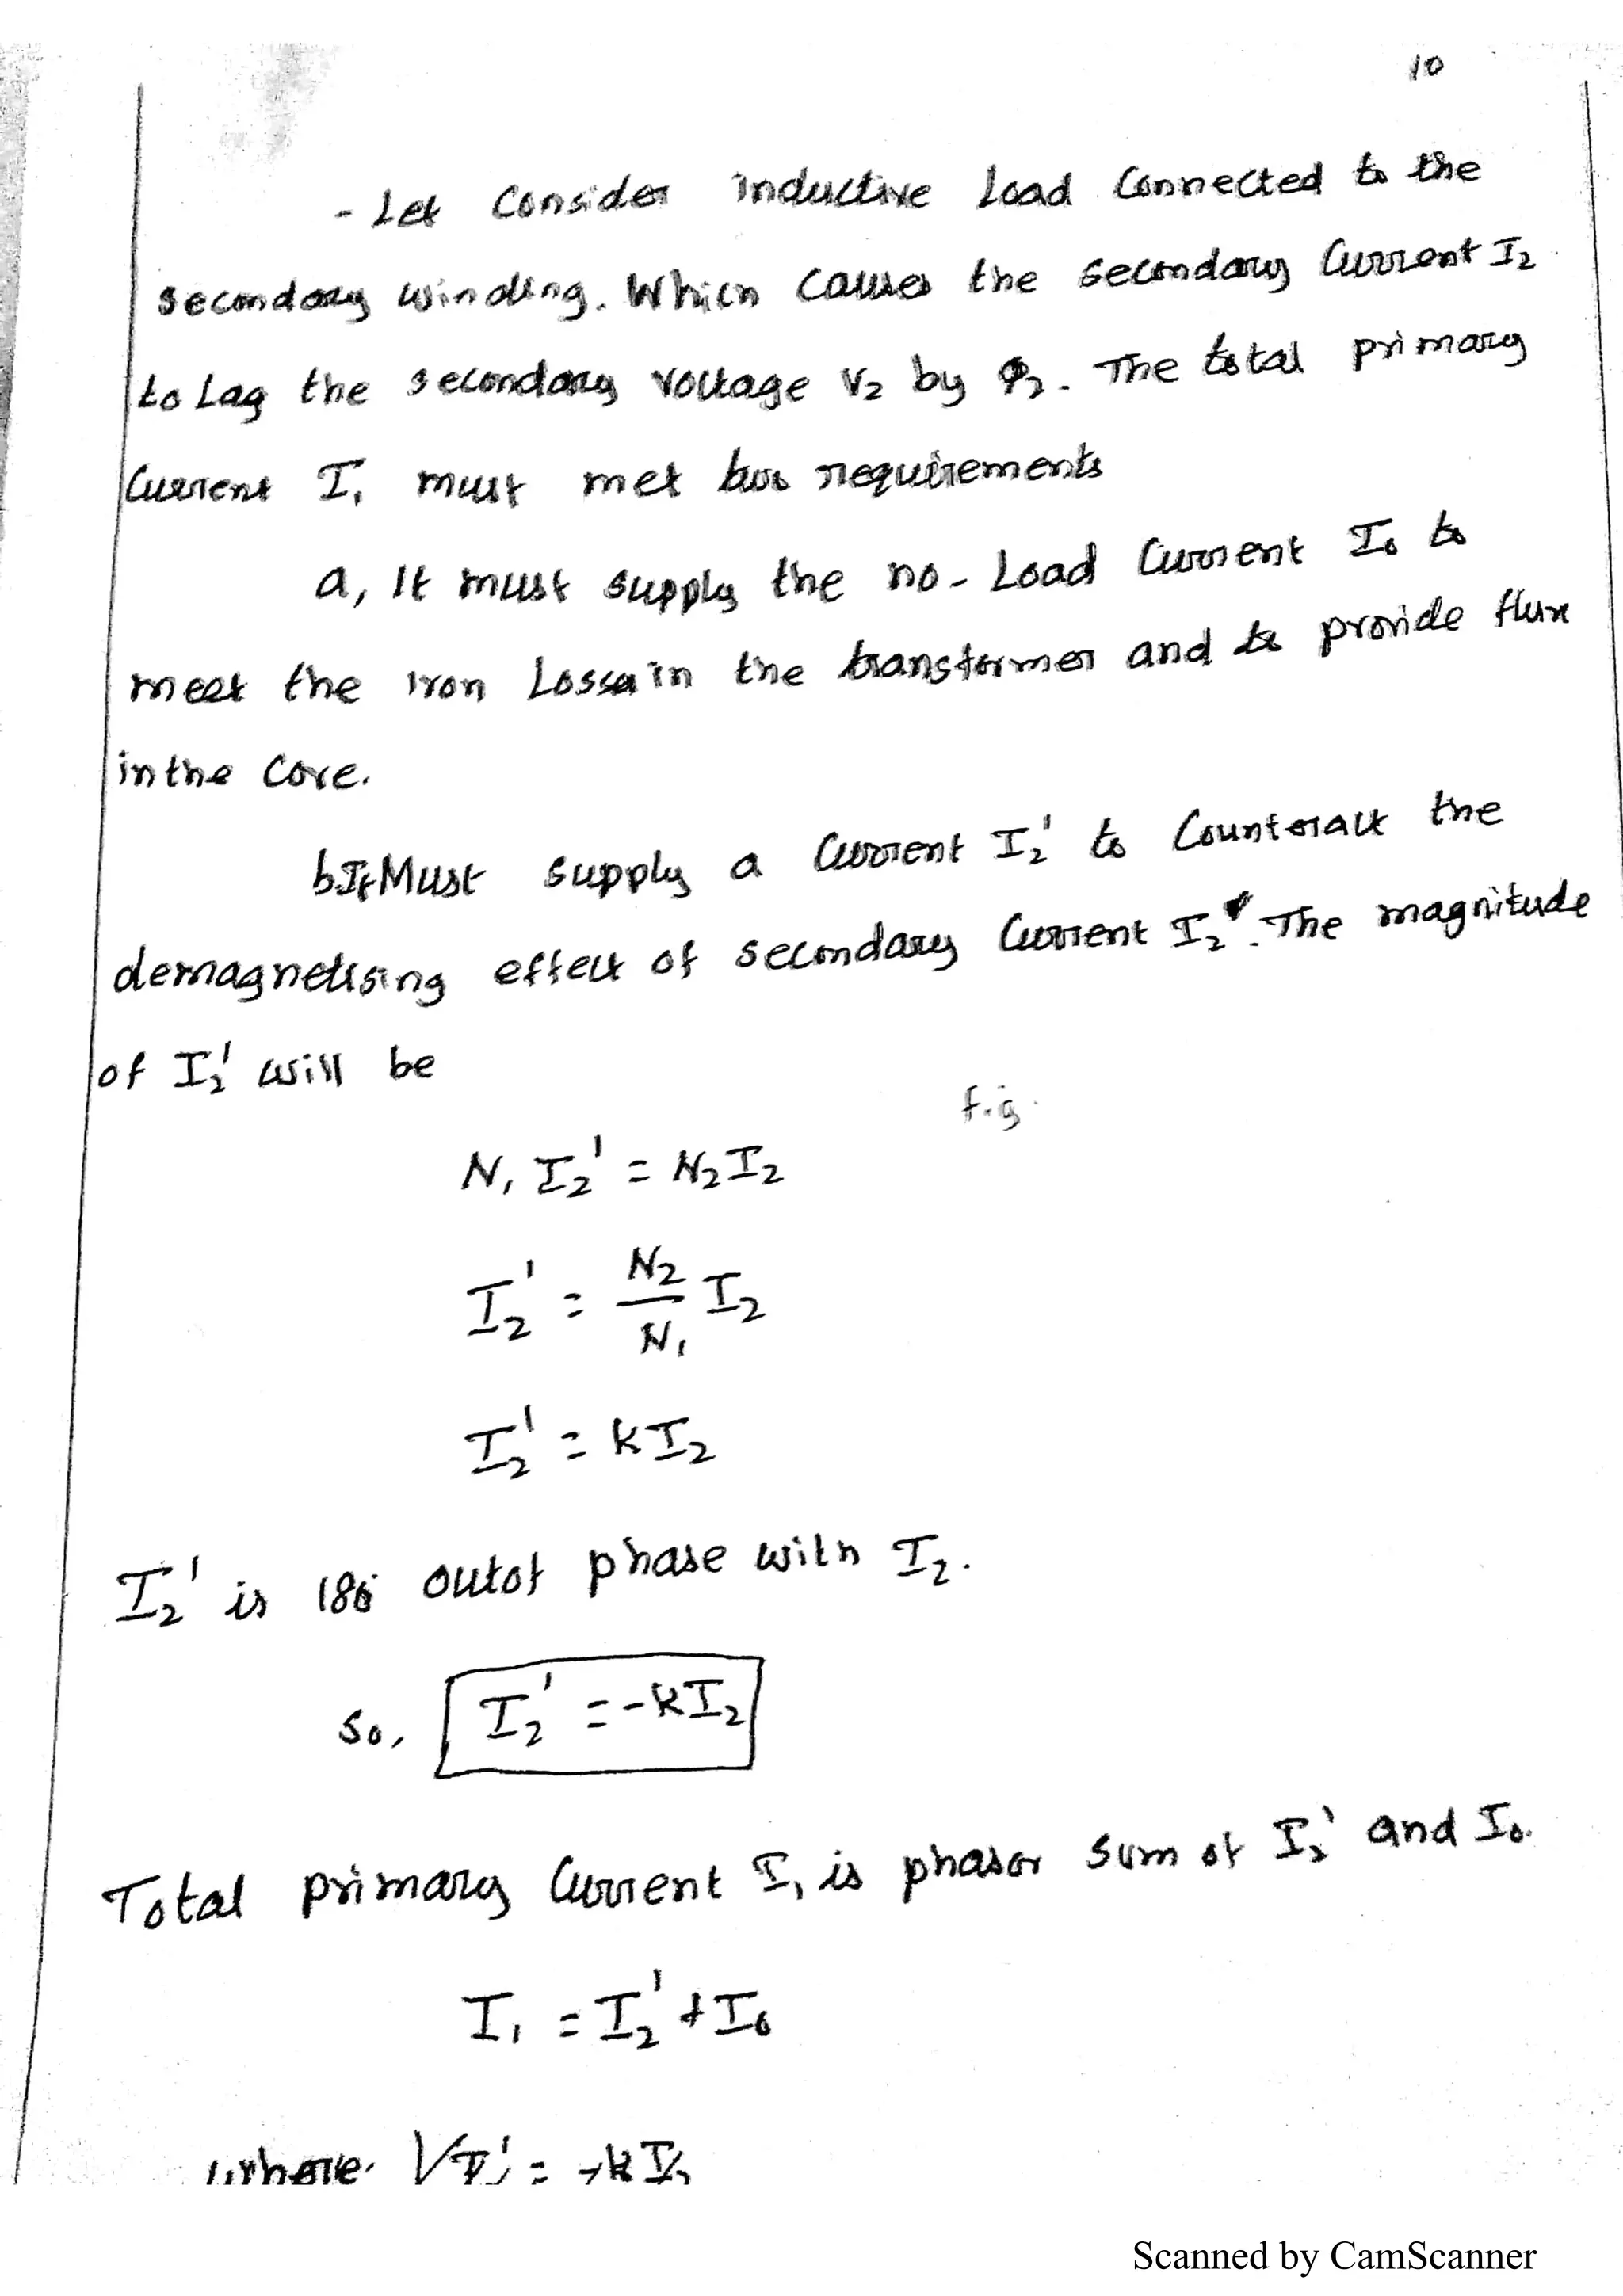 10
- Let Consider inductive Load Connected to the
secondary winding. Which causes the secondary Current I₂
to Lag the secondary voltage V₂ by Φ₂. The total primary
Current I₁ must met two requirements
a, It must supply the no-Load Current I₀ to
meet the iron Losses in the transformer and to provide flux
in the Core.
b, It Must supply a Current I₂' to Counteract the
demagnetising effect of secondary Current I₂. The magnitude
of I₂' will be
fig.
N₁ I₂' = N₂ I₂
I₂' = N₂/N₁ I₂
I₂' = K I₂
I₂' is 180° out of phase with I₂.
So, I₂' = -K I₂
Total primary Current I₁ is phasor sum of I₂' and I₀.
I₁ = I₂' + I₀
where I₂' = -K I₂
Scanned by CamScanner